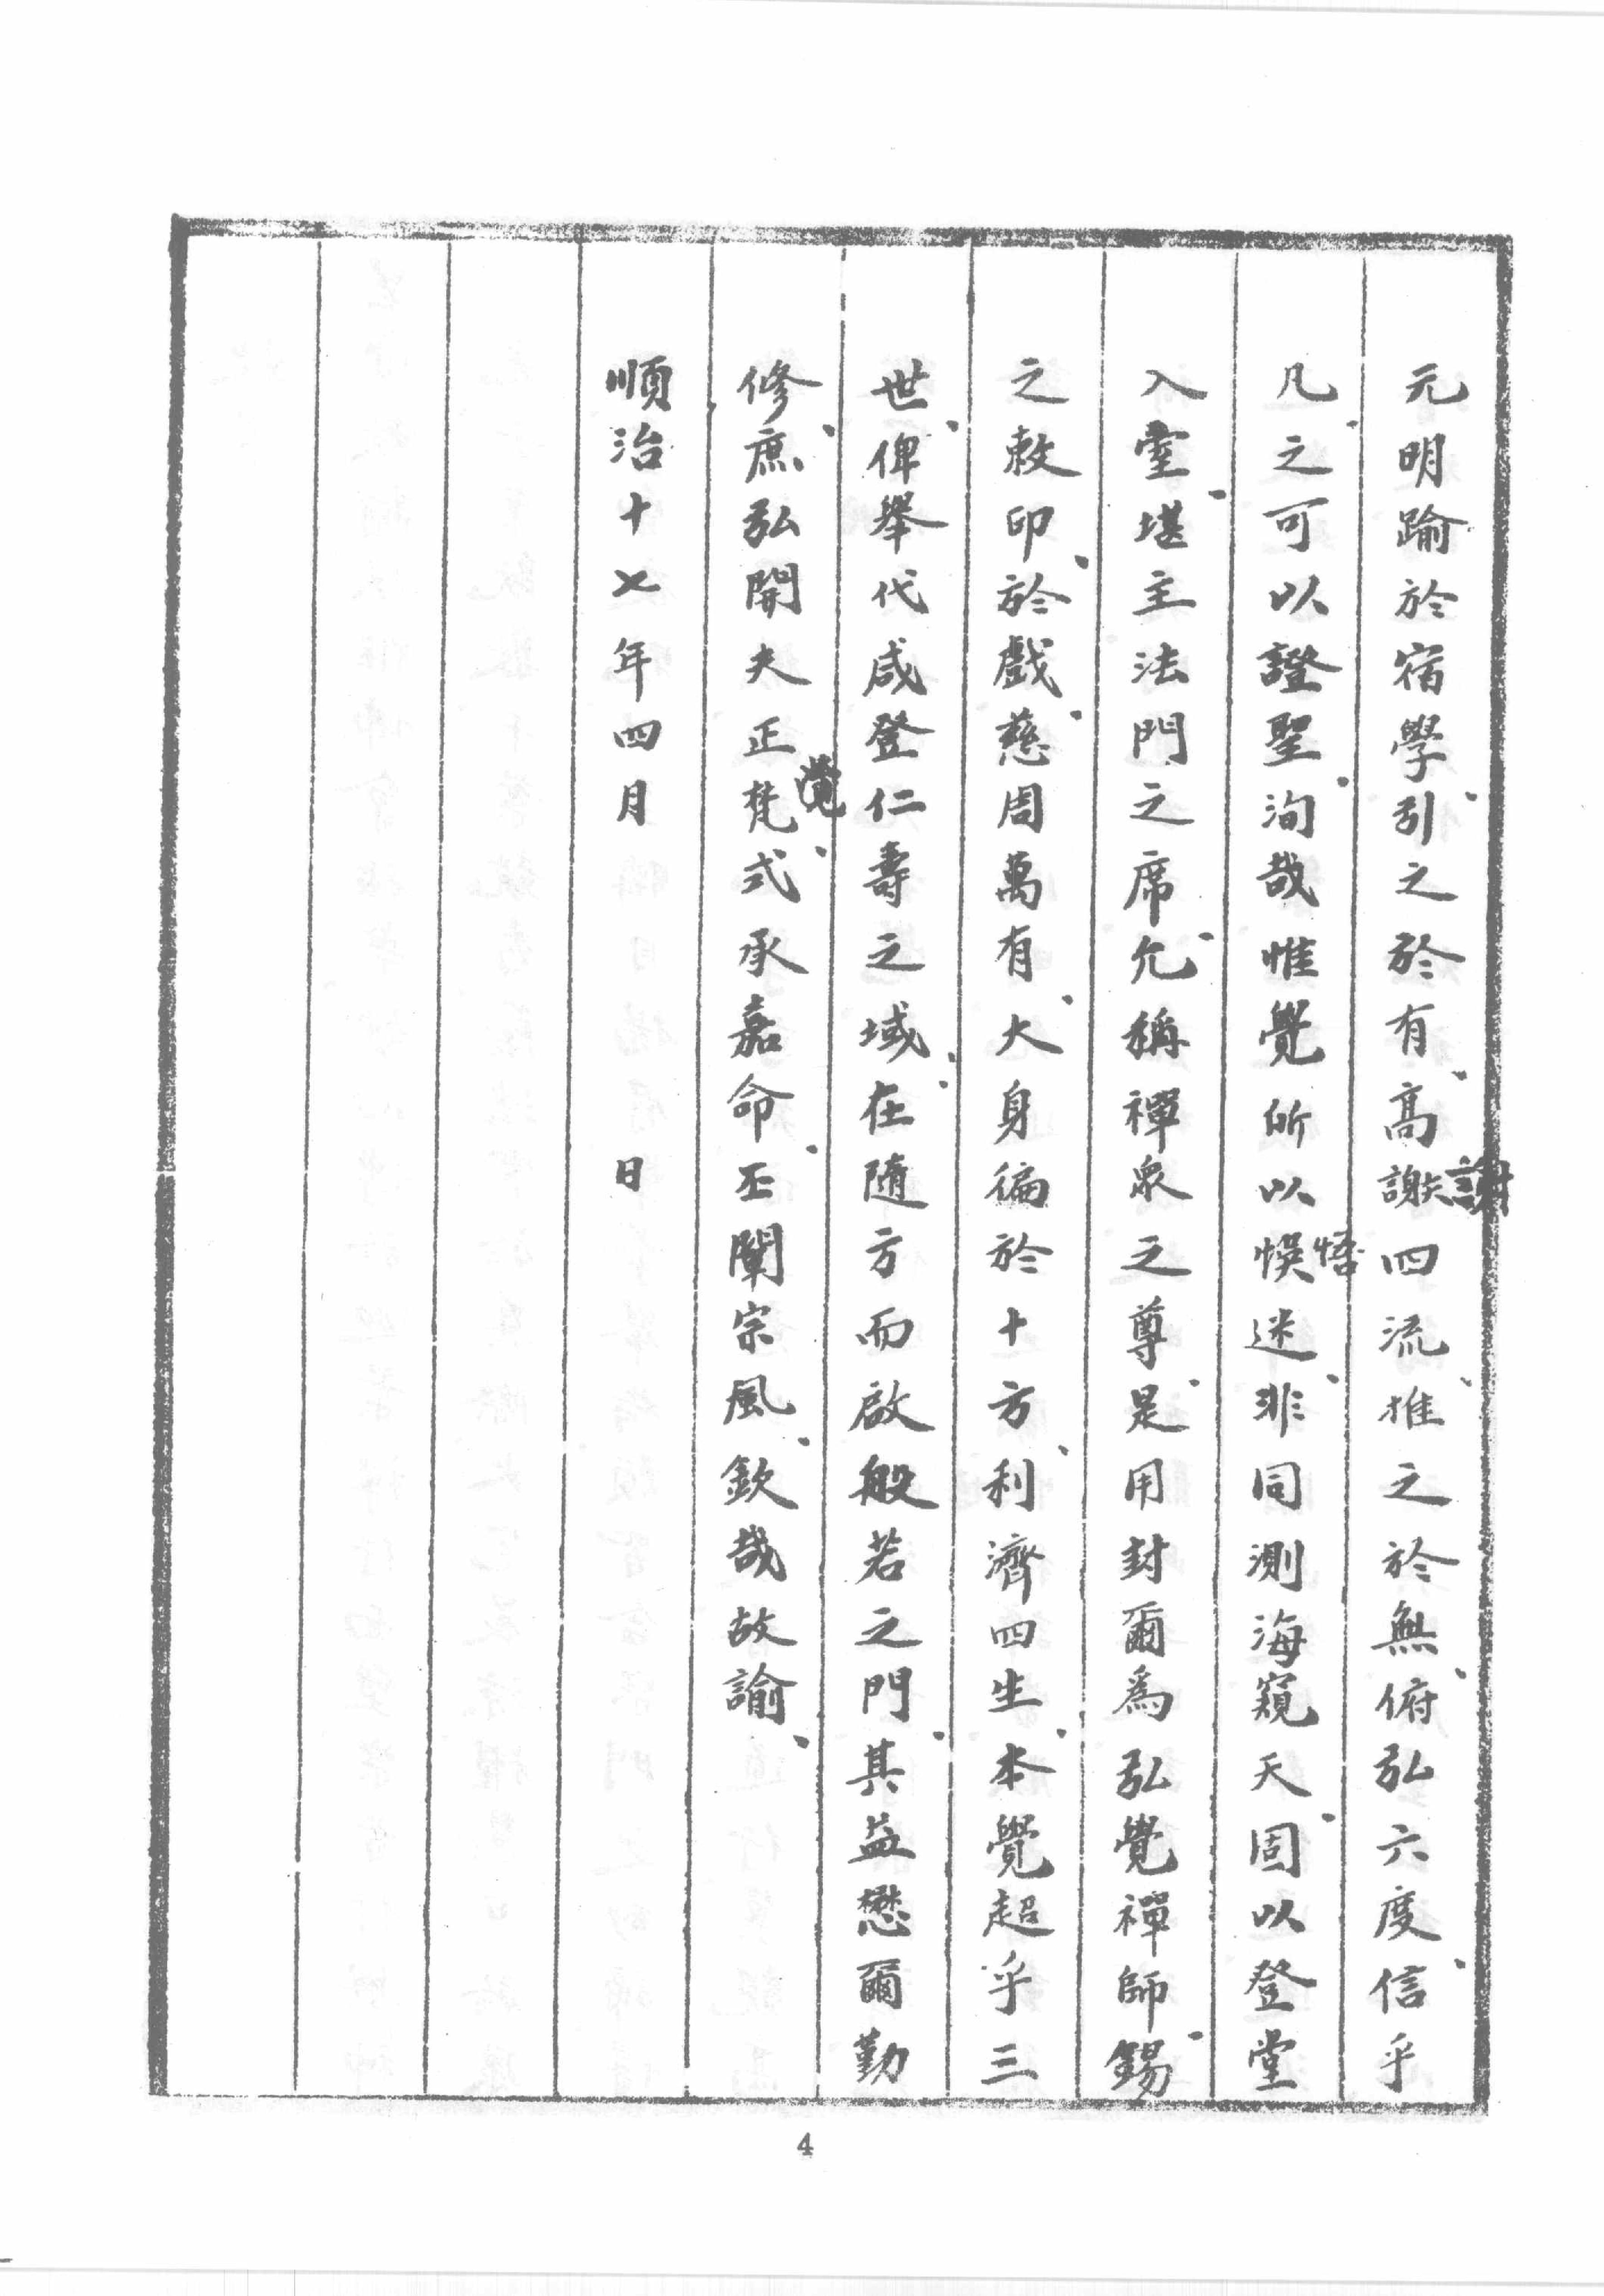 元明踰於宿學引之於有高謝四流推之於無俯弘六度信乎
謝
凡之可以證聖洵哉惟覺所以悞迷非同測海窺天固以登堂
悟
入室堪主法門之席允稱禪衆之尊是用封爾爲弘覺禪師錫
之敕印於戲慈周萬有大身徧於十方利濟四生本覺超乎三
世俾舉代咸登仁壽之域在隨方而啟般若之門其益懋爾勤
修庶弘開夫正梵式承嘉命丕闡宗風欽哉故諭
覺
順治十七年四月 日
4